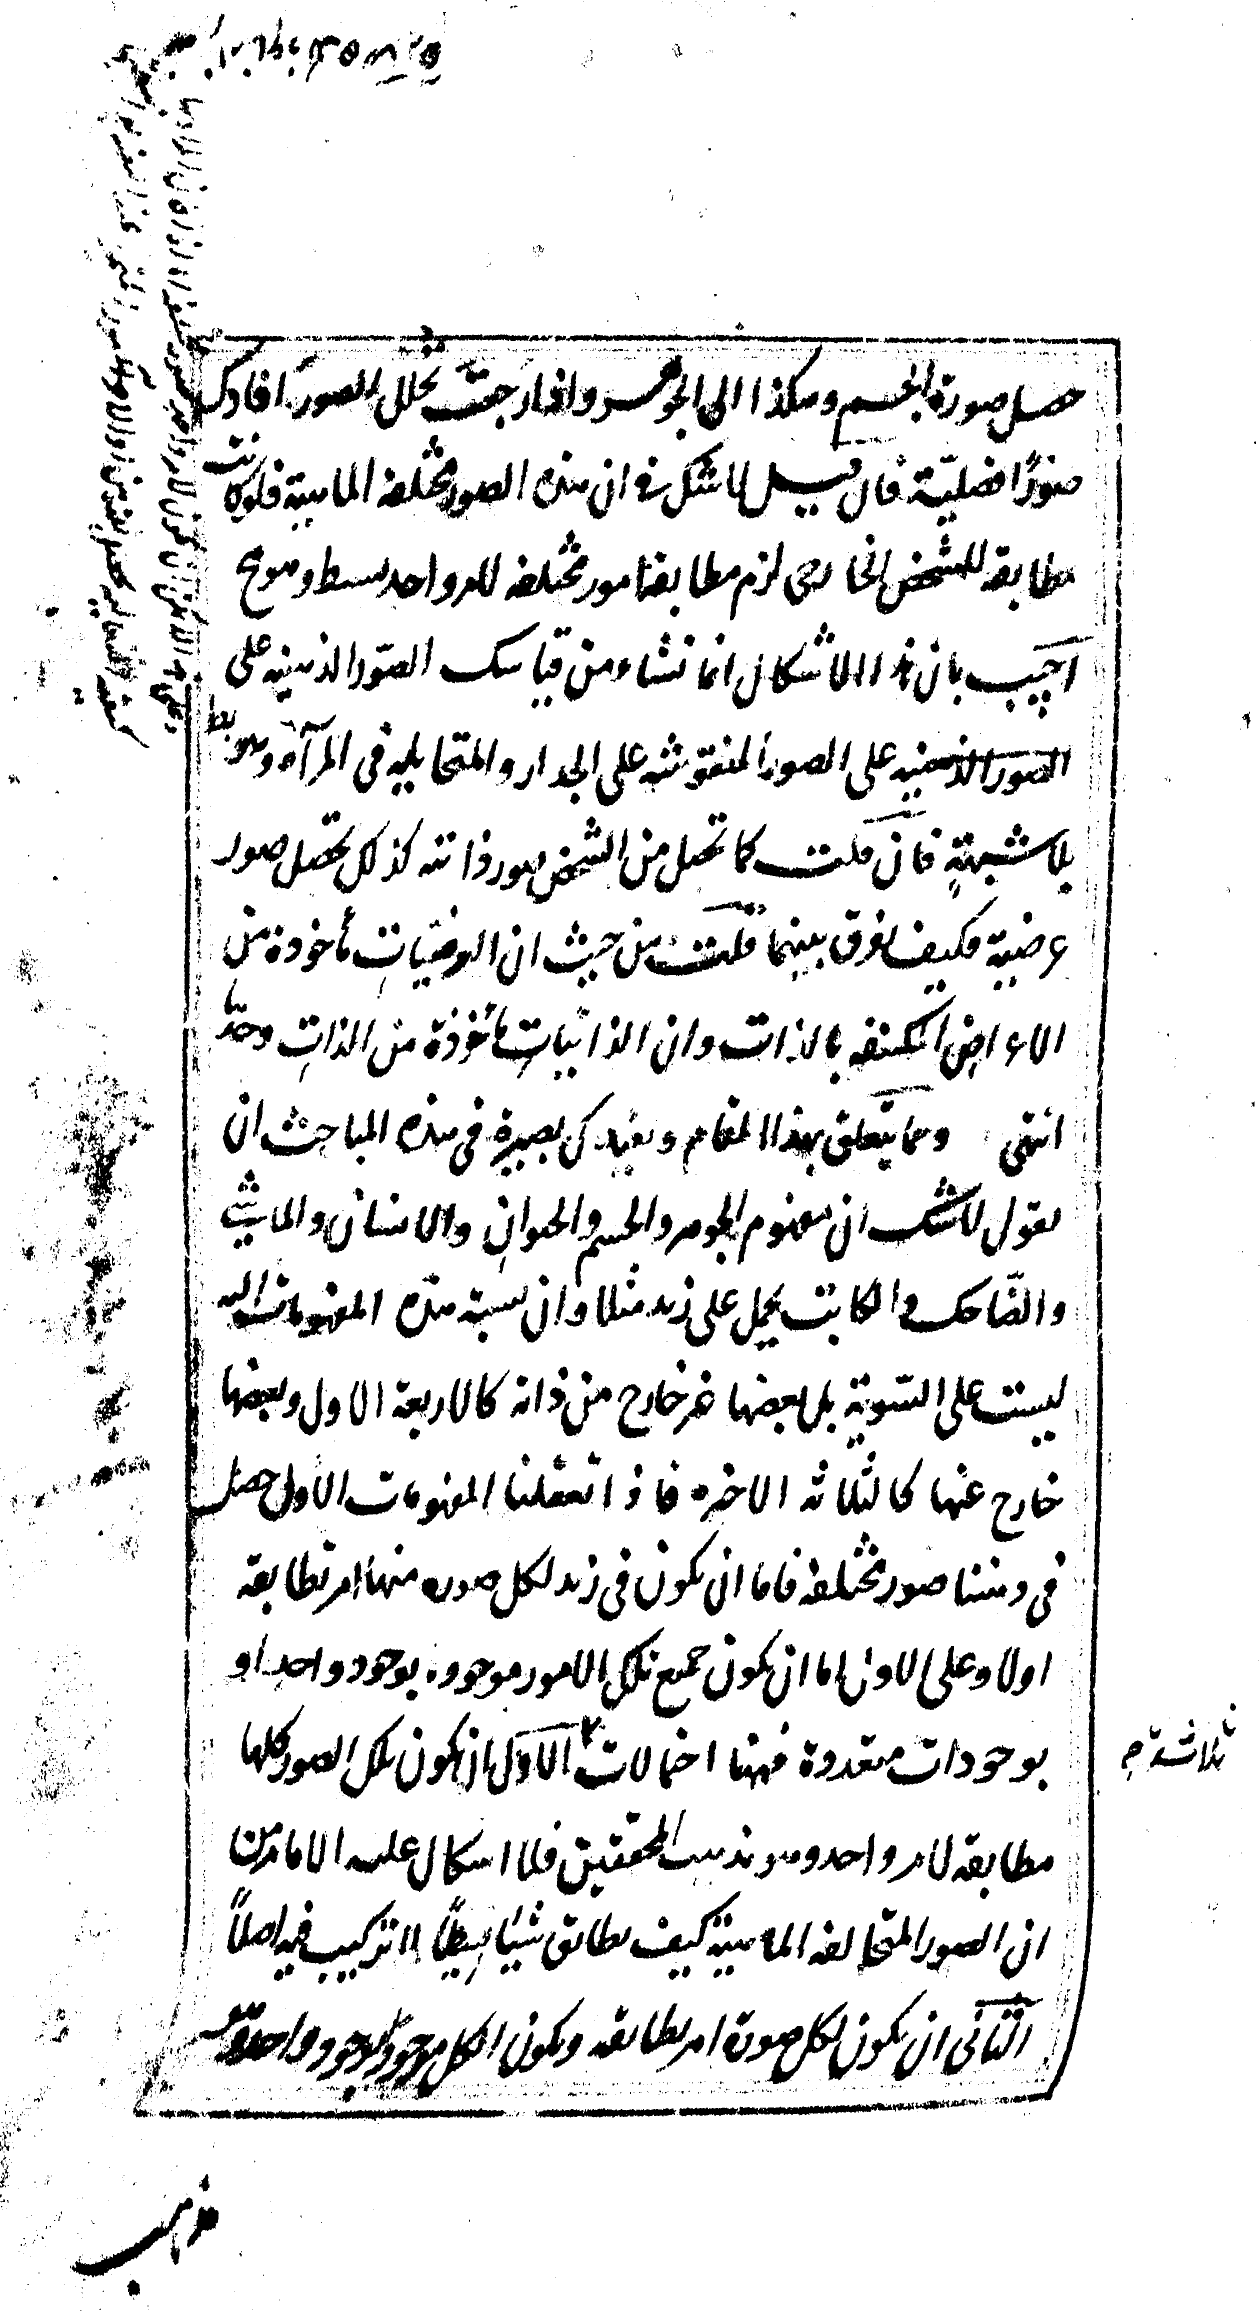 حصل صورة الجسم وهكذا الى الجوهر واذا رجعت تحلل الصور افادك
صورًا فضليّة فان قيل لاشك فى ان هذه الصور مختلفه الماهية فلو كانت
مطابقه للشخص الخارجى لزم مطابقة امور مختلفه لامر واحد بسيط وهو مح
اجيب بان هذا الاشكال انما نشاء من قياسك الصّور الذهنيه على
الصور الذهنيه على الصور المنقوشه على الجدار والمتخايليه فى المرآة وهو بط
بلا شبهةٍ فان قلت كما تحصل من الشخص صور ذاتيه كذلك تحصل صور
عرضية فكيف يفرق بينهما قلت من حيث ان العرضيات مأخوذة من
الاعراض المكتنفه بالذات وان الذاتيات مأخوذة من الذات وحدّها
انتهى ومما يتعلق بهذا المقام ويفيدك بصيرة فى هذه المباحث ان
يقول لاشك ان مفهوم الجوهر والجسم والحيوان والانسان والماشى
والضّاحك والكاتب يحمل على زيد مثلا وان نسبة هذه المفهومات اليه
ليست على السّوية بل بعضها غير خارج من ذاته كالاربعة الاول وبعضها
خارج عنها كالثلاثه الاخيره فاذا تعقلنا المفهومات الاول حصل
فى ذهننا صور مختلفه فاما ان يكون فى زيد لكل صوره منها امر تطابقه
اولا وعلى الاول اما ان يكون جميع تلك الامور موجوده بوجود واحد او
بوجودات متعددة فههنا احتمالات الاوّل ان يكون تلك الصور كلها
ثلاثة
مطابقه لامر واحد وهو مذهب المحققين فلا اشكال عليه الا ما مر من
ان الصور المتخالفه الماهية كيف يطابق شيئا بسيطًا لا تركيب فيه اصلاً
الثانى ان يكون لكل صورة امر يطابقه ويكون الكل موجودا بوجود واحد وهو
مذهب